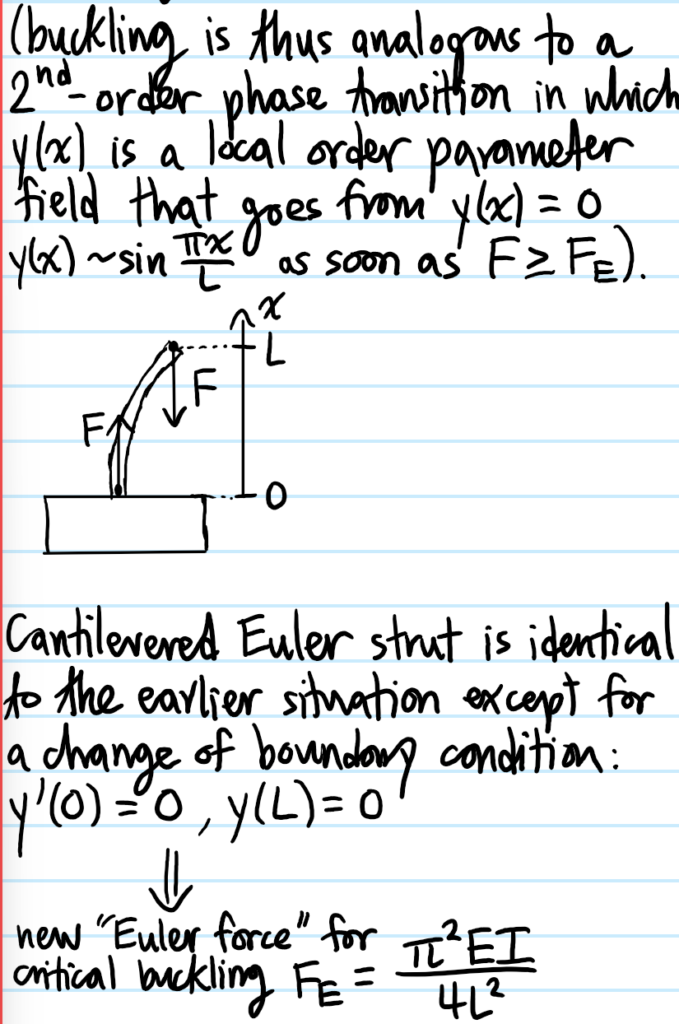 (buckling is thus analogous to a
2nd-order phase transition in which
y(x) is a local order parameter
field that goes from y(x) = 0
y(x) ~ sin πx/L as soon as F ≥ F_E).
x
L
F
F
0
Cantilevered Euler strut is identical
to the earlier situation except for
a change of boundary condition:
y'(0) = 0, y(L) = 0
⇓
new "Euler force" for
critical buckling F_E = π²EI/4L²